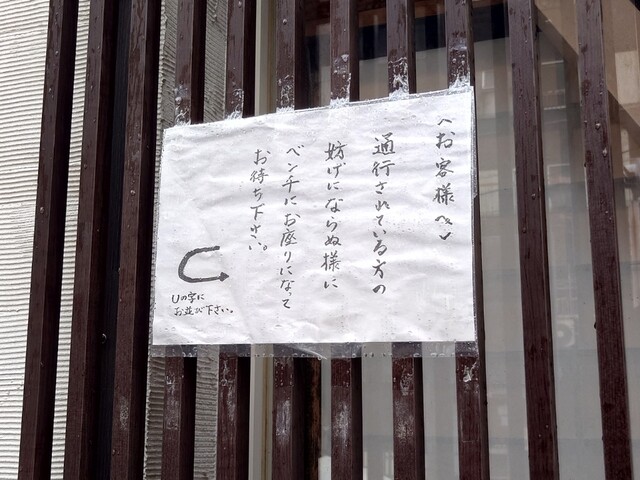 〈お客様へ〉
通行されている方の
妨げにならぬ様に
ベンチにお座りになって
お待ち下さい。
Uの字に
お並び下さい。